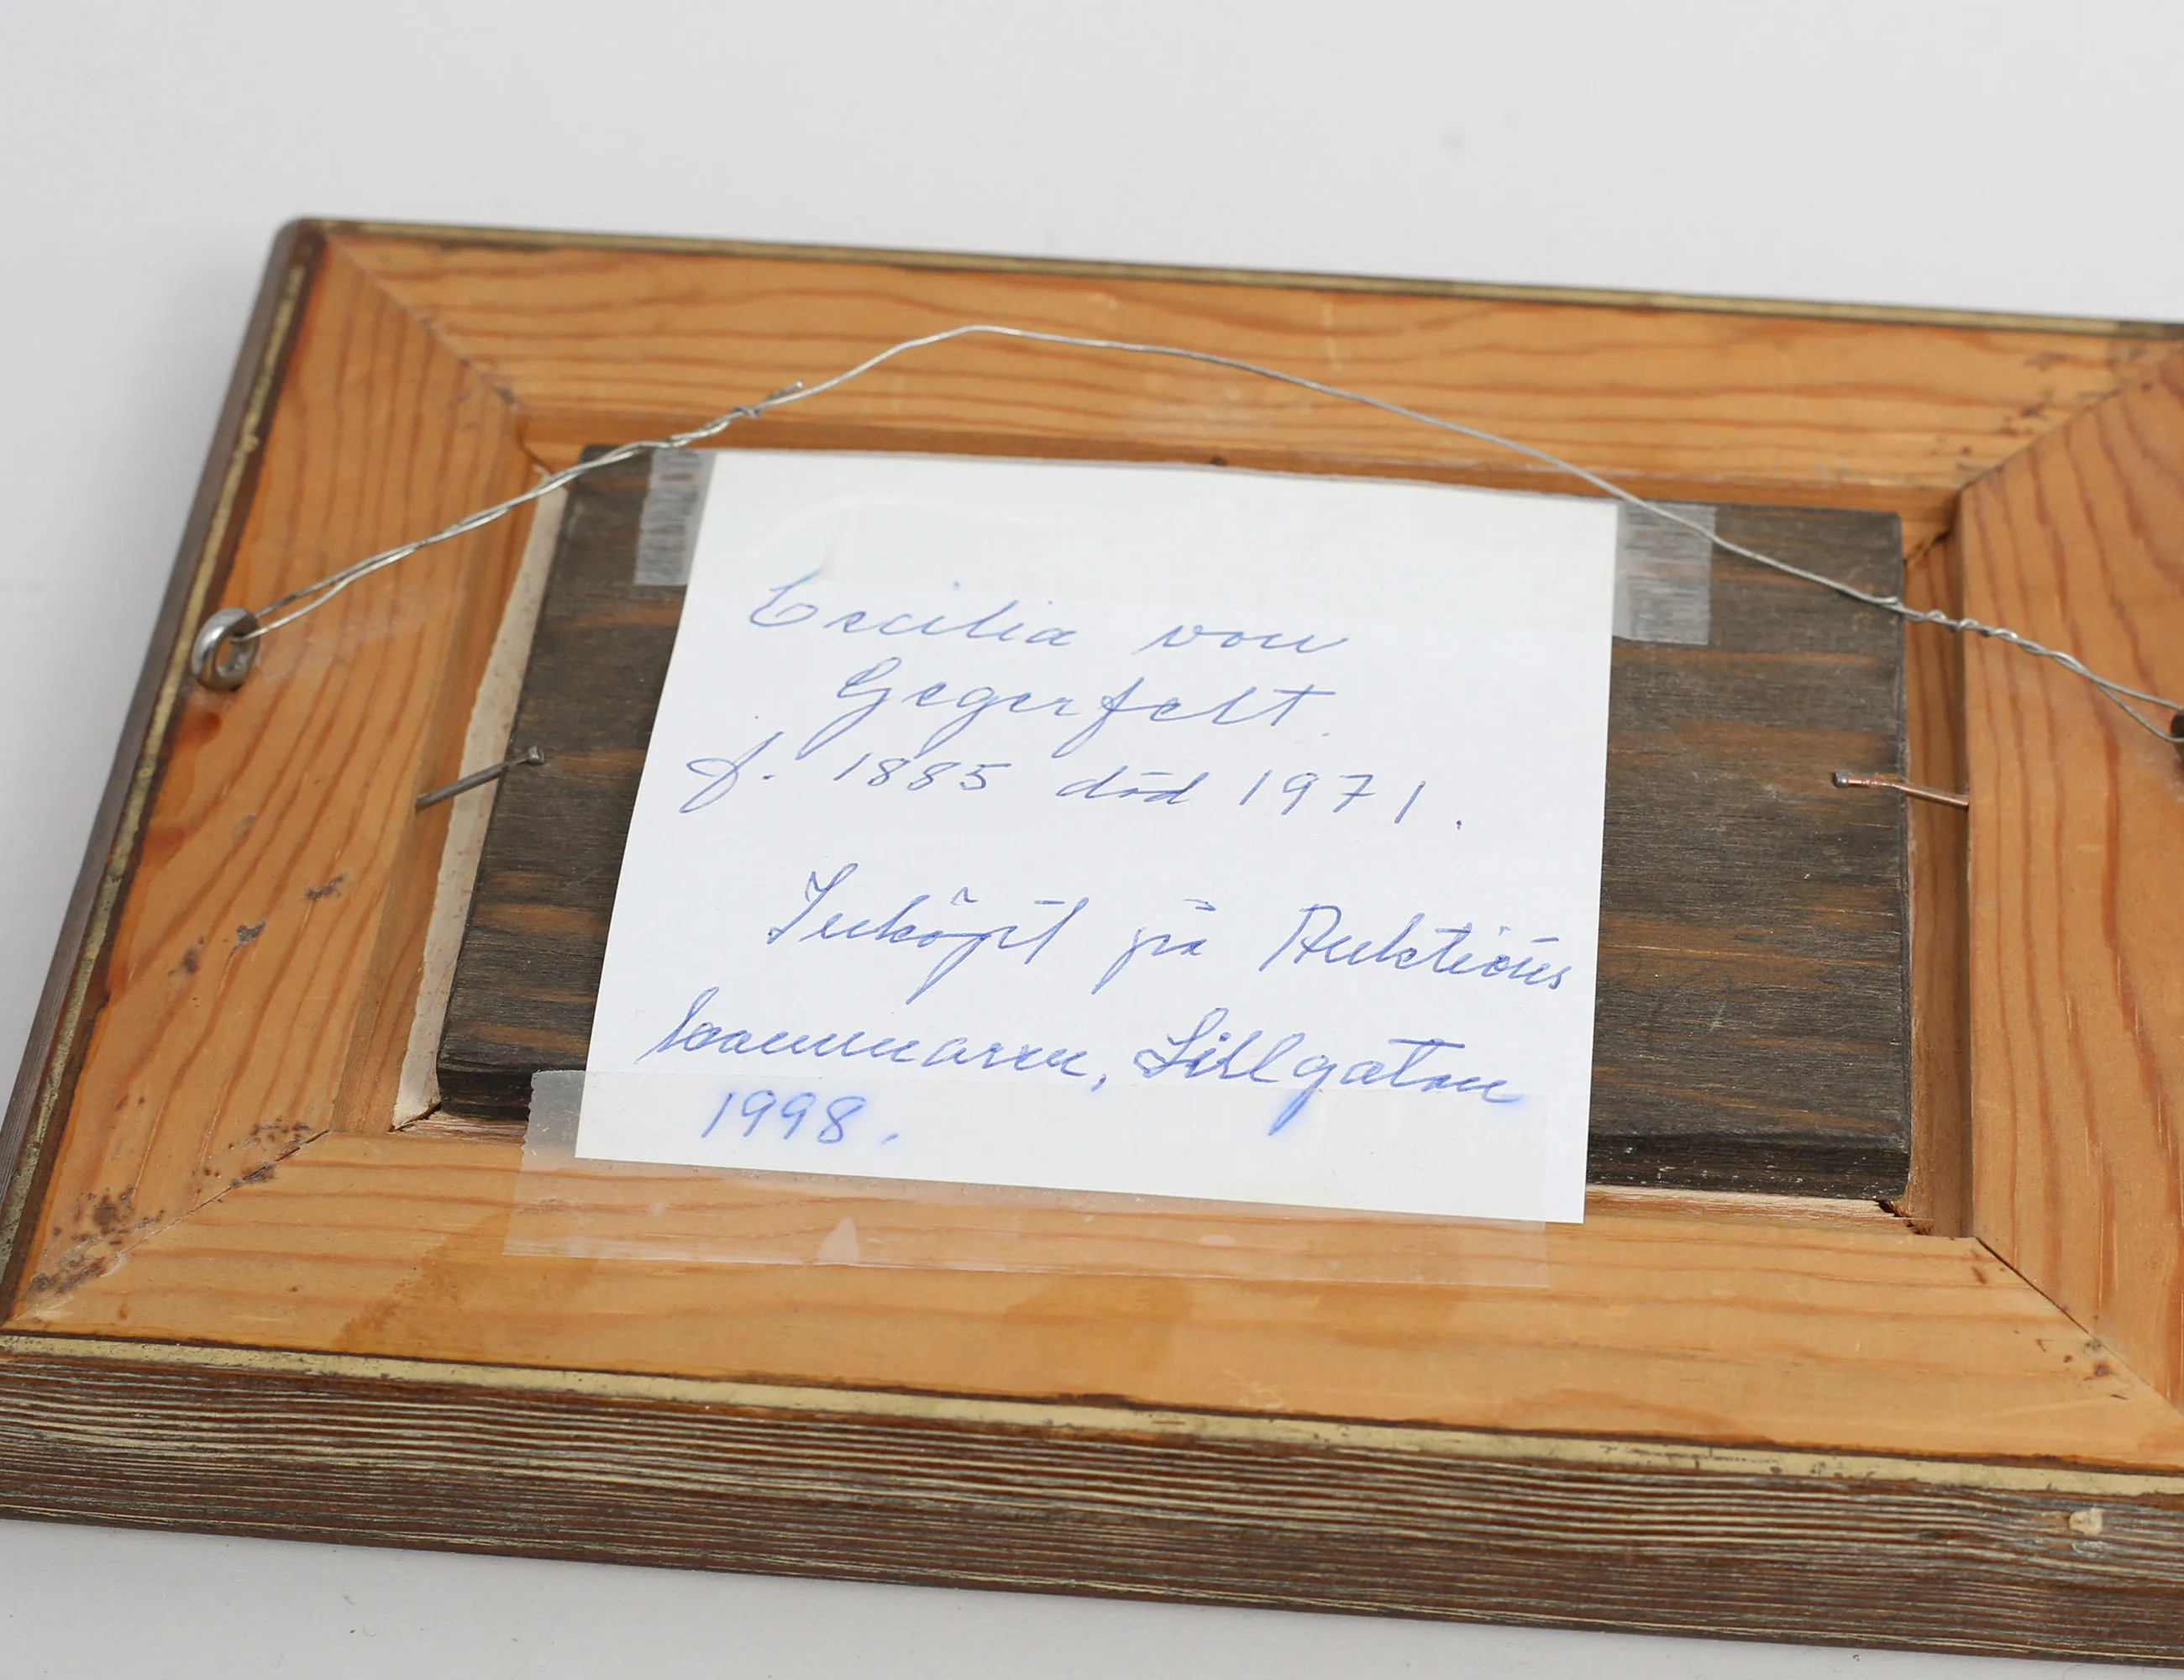 Cecilia von
Gegerfelt.
f. 1885 död 1971.
Inköpt på Auktions
kammaren, Sillgatan
1998.